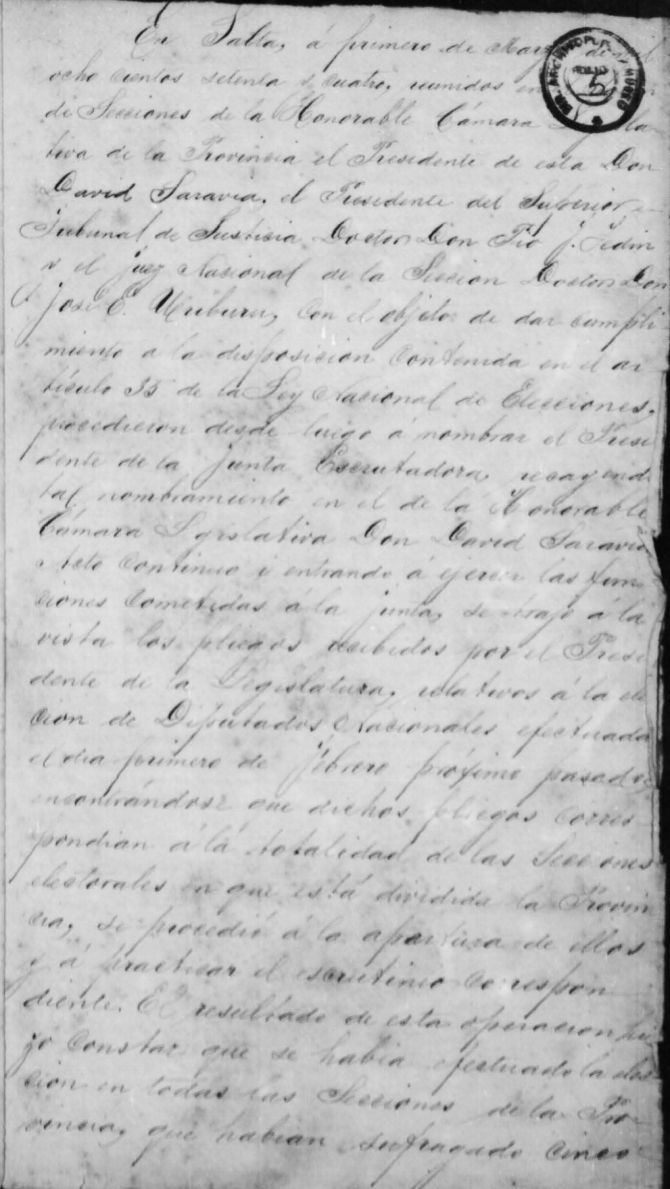 En Salta, á primero de Mayo de
ocho cientos setenta y cuatro, reunidos en
de Sesiones de la Honorable Cámara Legisla
tiva de la Provincia el Presidente de esta Don
David Saravia, el Presidente del Superior
Tribunal de Justicia Doctor Don Pio J. Tedin
y el Juez Nacional de la Seccion Doctor Don
José E. Uriburu, con el objeto de dar cumpli
miento a la disposicion contenida en el ar
tículo 35 de la Ley Nacional de Elecciones,
procedieron desde luego á nombrar el Presi
dente de la Junta Escrutadora, recayendo
tal nombramiento en el de la Honorable
Cámara Lgislativa Don David Saravia
Acto continuo i entrando á ejercer las fun
ciones cometidas á la junta, se trajo á la
vista los pliegos recibidos por el Presi
dente de la Legislatura, relativos á la elec
cion de Diputados Nacionales efectuada
el dia primero de febrero próximo pasado,
encontrándose que dichos pliegos corres
pondian á la totalidad de las Secciones
electorales en que está dividida la Provin
cia, se procedió á la apertura de ellos
y á practicar el escrutinio correspon
diente. El resultado de esta operacion hi
zo constar que se habia efectuado la elec
cion en todas las Secciones de la Pro
vincia, que habian sufragado cinco